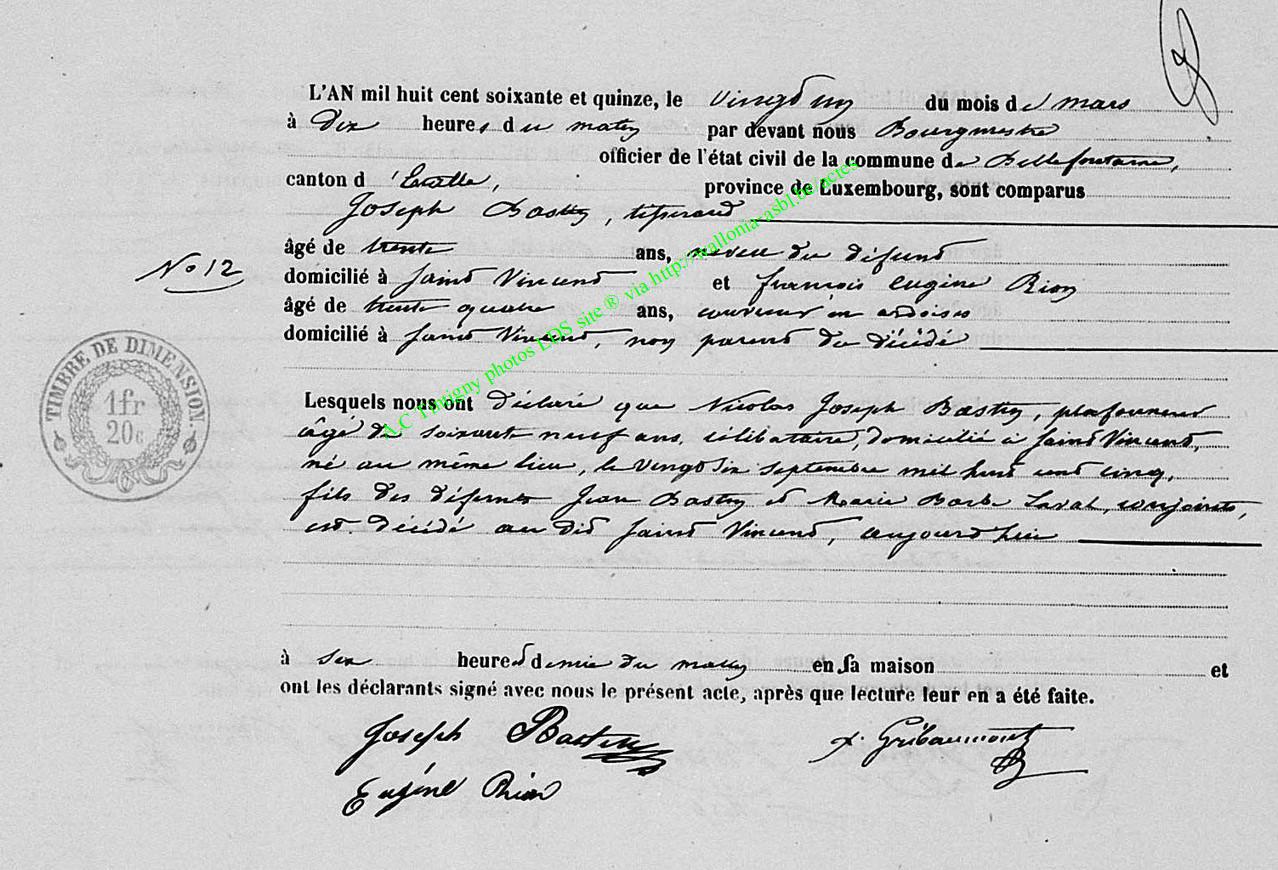 L'AN mil huit cent soixante et quinze, le vingt un du mois de mars
à dix heures du matin par devant nous Bourgmestre
officier de l'état civil de la commune de Bellefontaine,
canton d'Etalle, province de Luxembourg, sont comparus
Joseph Bastin, tisserand
âgé de trente ans, neveu du défunt
No 12
domicilié à Saint Vincent et françois Eugène Rion
âgé de trente quatre ans, couvreur en ardoises
domicilié à Saint Vincent, non parent du décédé
TIMBRE DE DIMENSION.
1fr
20c
Lesquels nous ont déclaré que Nicolas Joseph Bastin, plafonneur
âgé de soixante neuf ans, célibataire, domicilié à Saint Vincent,
né au même lieu, le vingt six septembre mil huit cent cinq,
fils des défunts Jean Bastin et Marie Barbe Laval, conjoints,
est décédé au dit Saint Vincent, aujourd'hui
à six heures demie du matin en sa maison et
ont les déclarants signé avec nous le présent acte, après que lecture leur en a été faite.
Joseph Bastin
Gribaumont
Eugéne Rion
A.C Tintigny photos LDS site ® via http://wallonia-asbl.be/actes